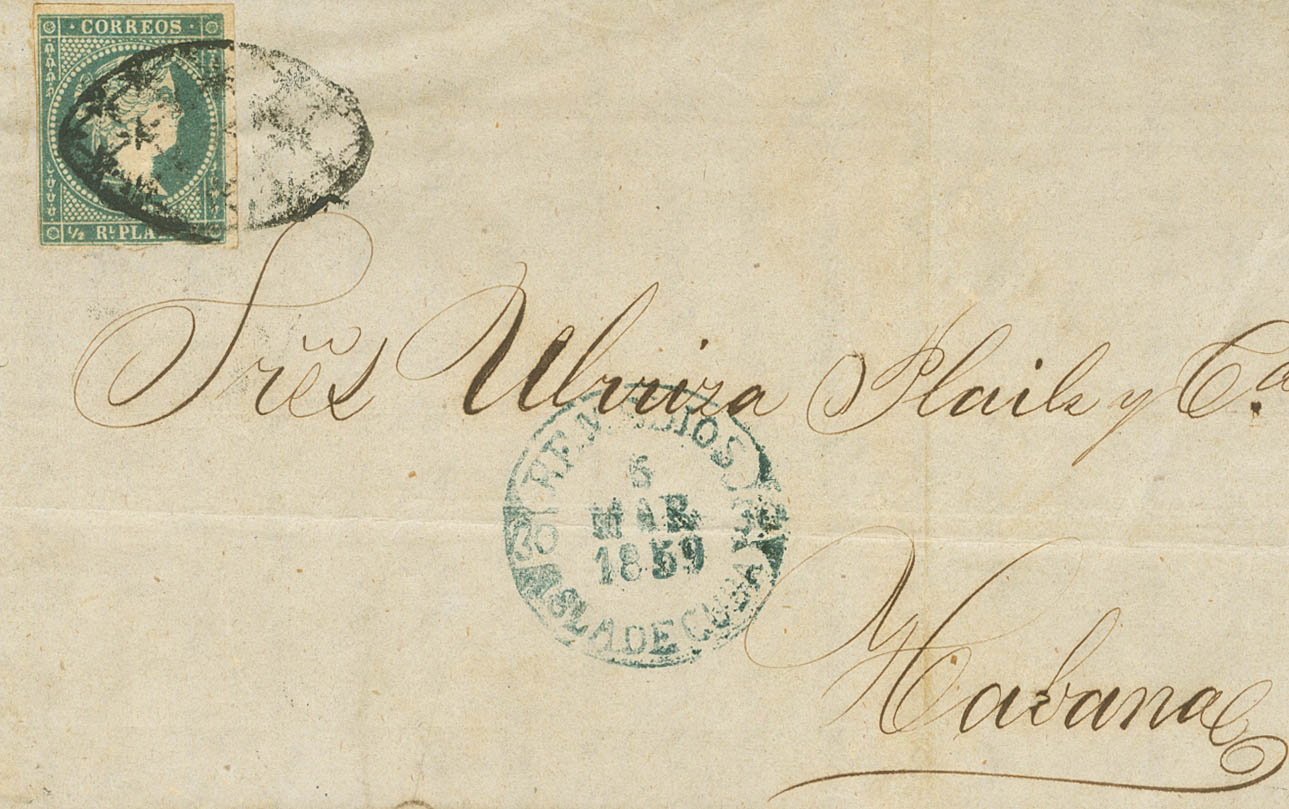 CORREOS
½ Rl. PLA
Sres Urruiza y Ca.
REMEDIOS
5
MAR
1859
ISLA DE CUBA
Habana